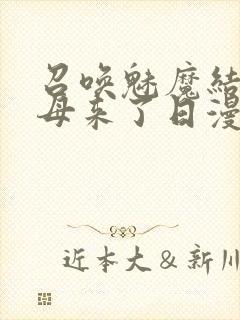 召唤魅魔结
母来了日漫
近本大＆新川